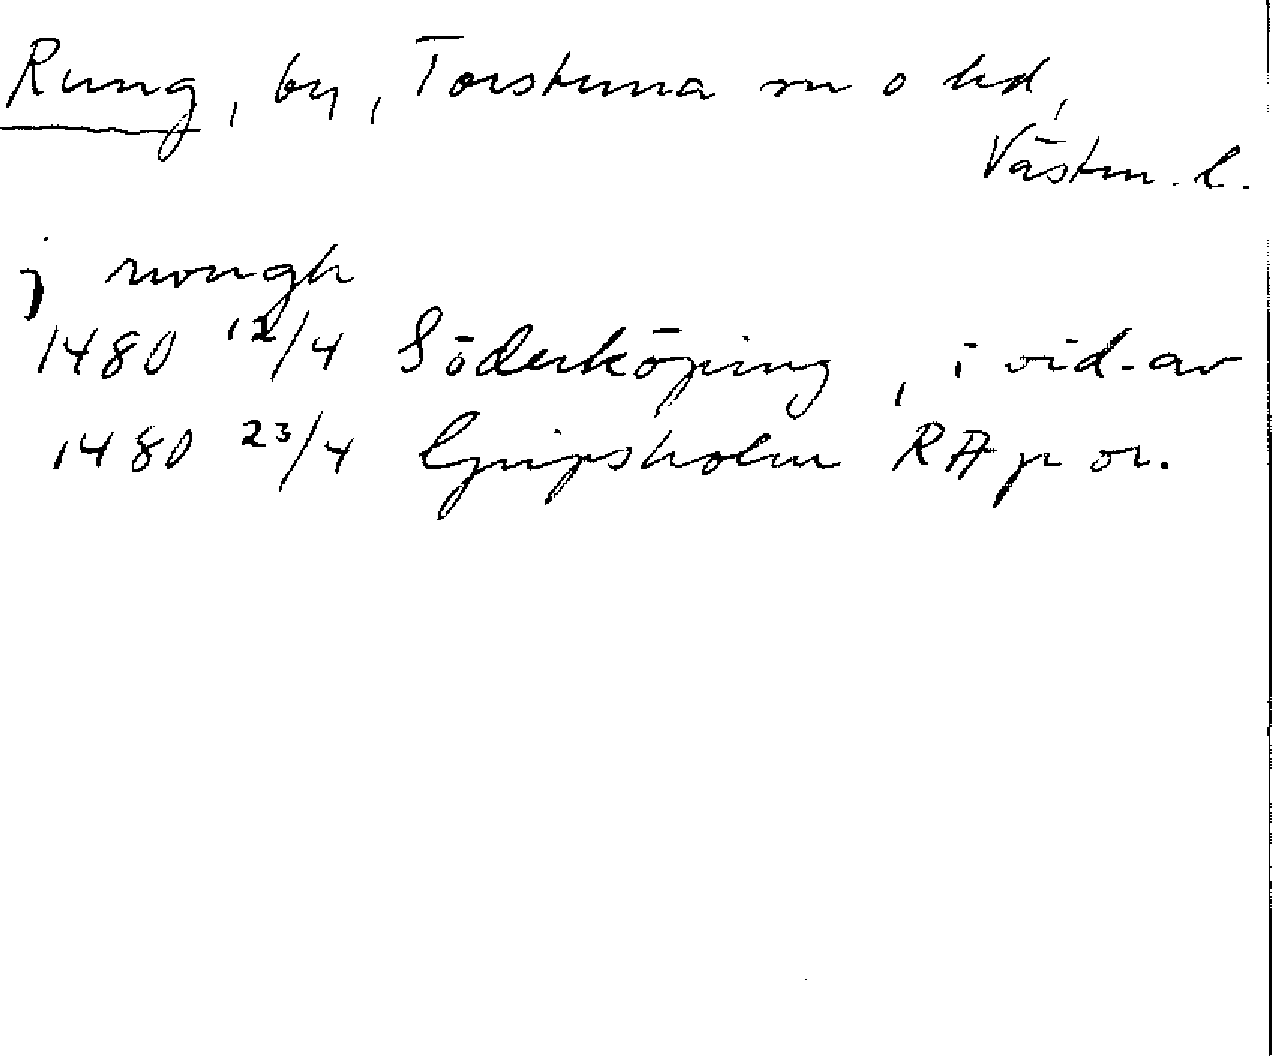 Rung, by, Torstuna sn o hd,
Västm. l.
j rwngh
1480 12/4 Söderköping, i vid-av
1480 23/4 Gripsholm RA p or.